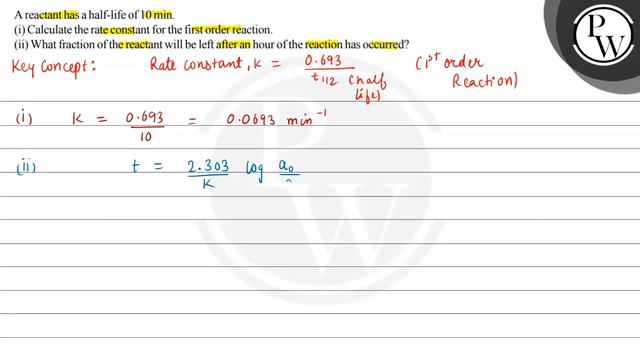 A reactant has a half-life of 10 min.
(i) Calculate the rate constant for the first order reaction.
(ii) What fraction of the reactant will be left after an hour of the reaction has occurred?
Key Concept: Rate constant, K = 0.693 / t1/2 (half life) (1st order Reaction)
(i) K = 0.693 / 10 = 0.0693 min⁻¹
(ii) t = 2.303 / K log a₀
PW